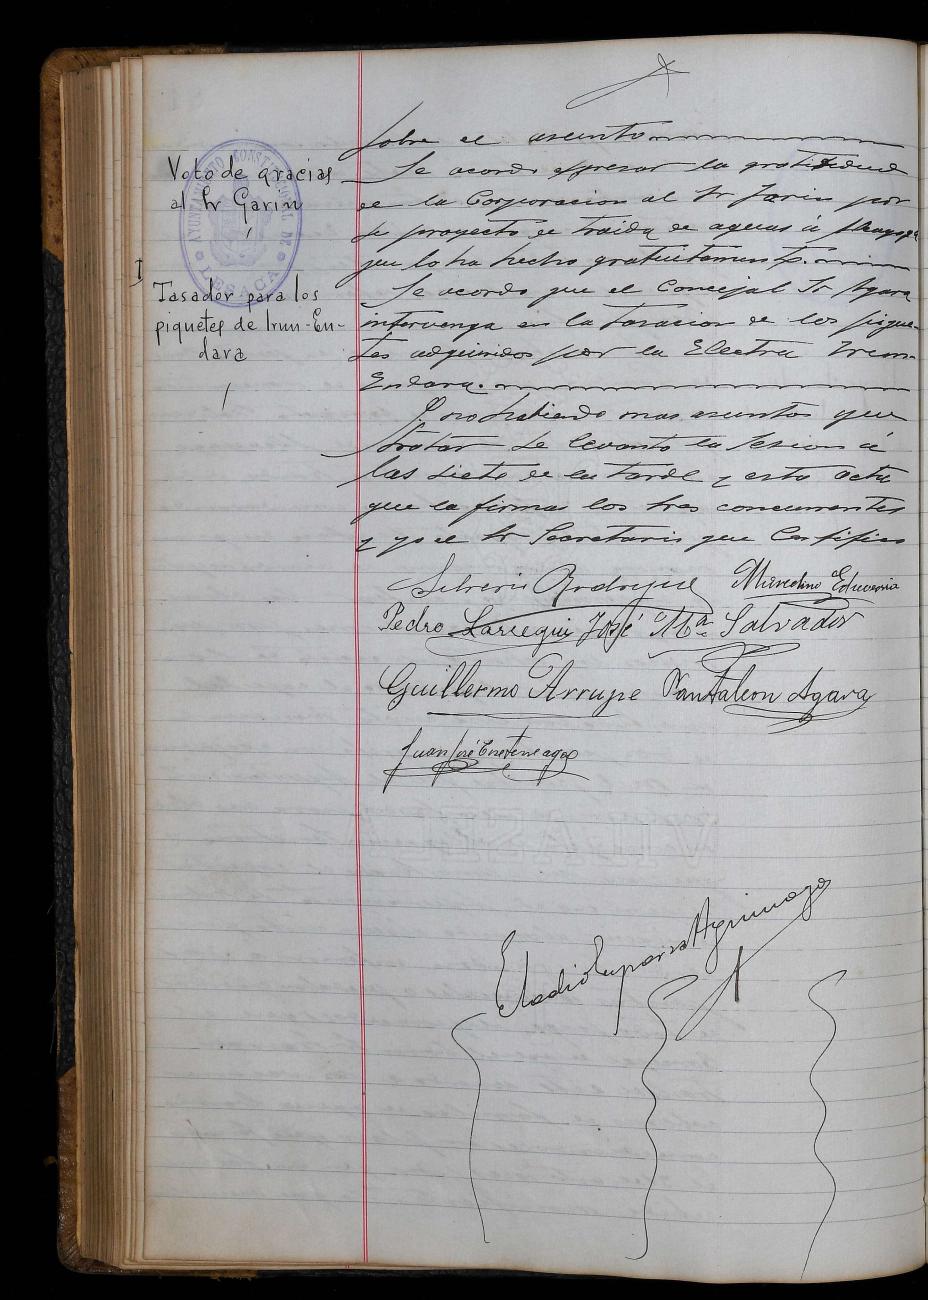 sobre el asunto
Voto de gracias
al Sr Garin
Se acordó expresar la gratitud
de la Corporacion al Sr Garin por
proyecto de traida de aguas á
que lo ha hecho gratuitamente.
Tasador para los
piquetes de Irun-En-
dara
Se acordo que el Concejal Sr Agara
intervenga en la tasacion de los pique-
tes adquiridos por la Electra Irun-
Endara.
Y no habiendo mas asuntos que
tratar se levanto la sesion á
las siete de la tarde y esta acta
que la firman los tres concurrentes
y yo el Sr Secretario que Certifico
AYUNTAMIENTO CONSTITUCIONAL DE
LESACA
Silverio Rodriguez Marcelino Echeverria
Pedro Larregui José Mª Salvador
Guillermo Arrupe Pantaleon Agara
Juan José
Eladio Esparza